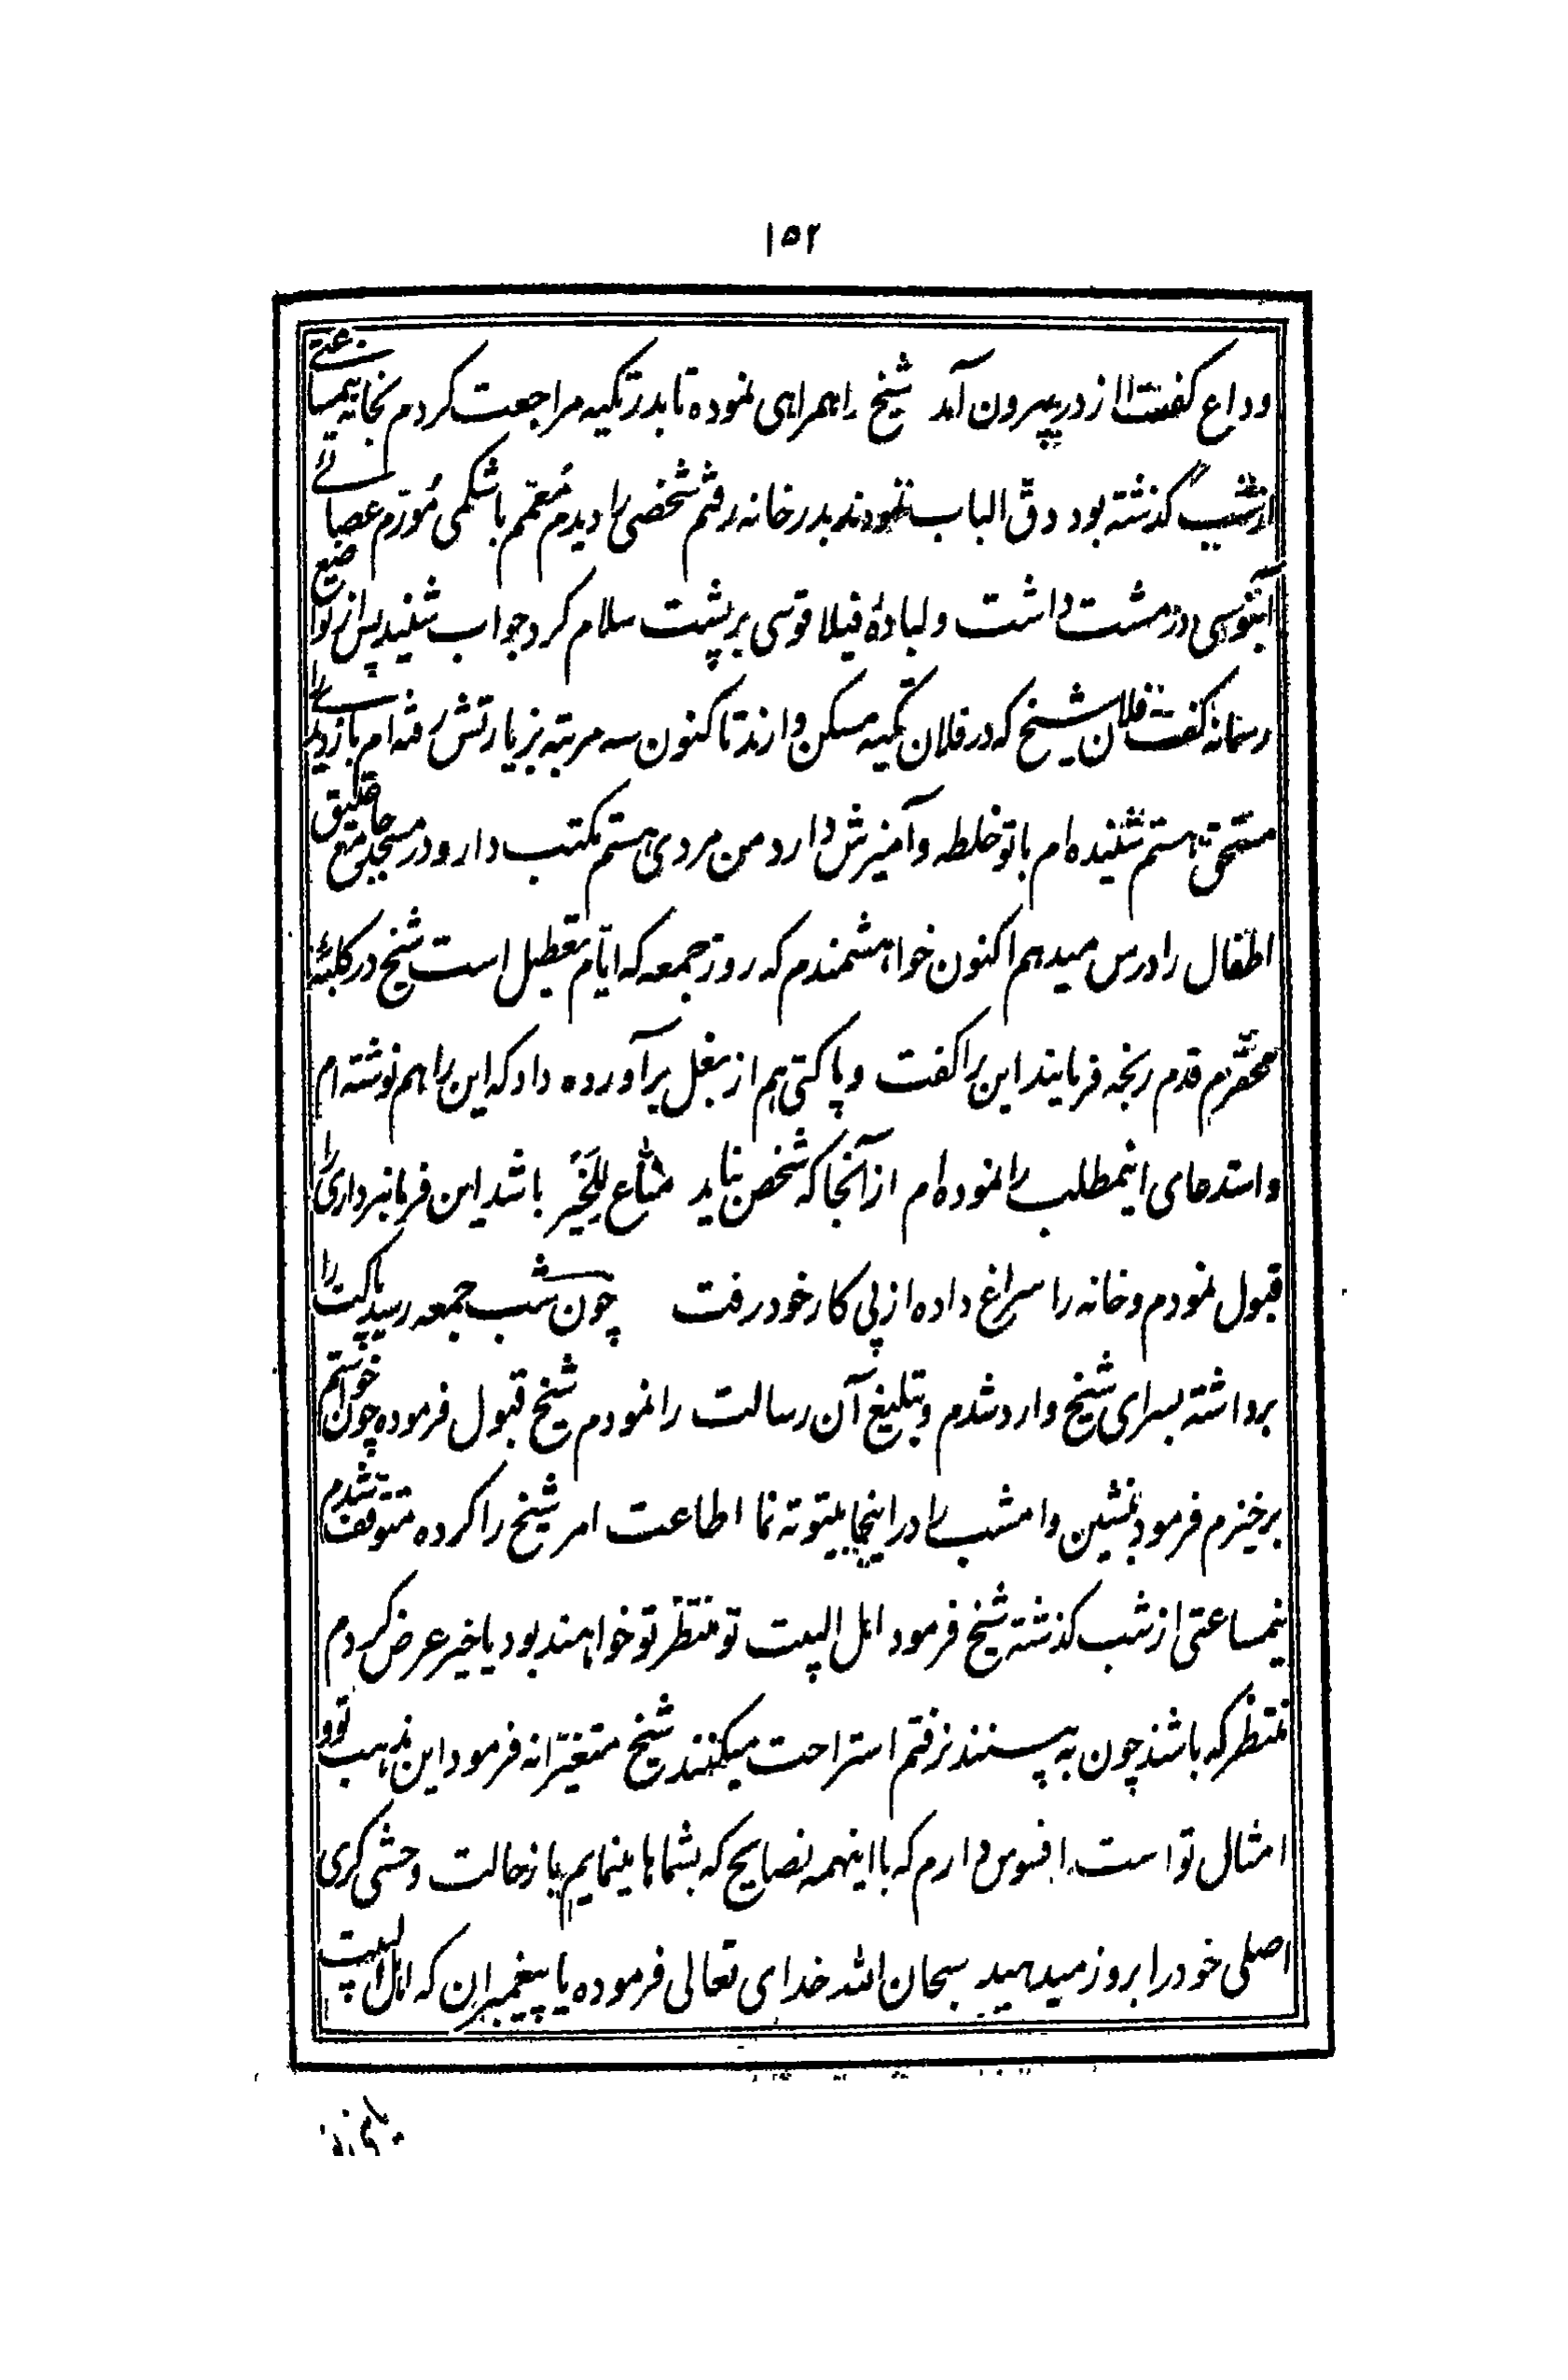 ١٥٢
وداع گفت از در بیرون آمد شیخ را همراهی نموده تا بدر تکیه مراجعت کردم بخانه نیمساعتی
از شب گذشته بود دق الباب نمودند بدر خانه رفتم شخصی را دیدم مُعمّم با شکمی مُورّم عصائی
آبنوسی در مشت داشت و لبادهٔ فیلاقوسی بر پشت سلام کرد جواب شنید پس از تواضع
رسمانه گفت فلان شیخ که در فلان تکیه مسکن دارند تا کنون سه مرتبه بزیارتش رفته‌ام بازدید را
مستحق هستم شنیده‌ام با تو خلطه و آمیزش دارد من مردی هستم مکتب دار و در مسجد جامع قلیق
اطفال را درس میدهم اکنون خواهشمندم که روز جمعه که ایّام تعطیل است شیخ در کلبهٔ
محقّرم قدم رنجه فرمایند این را گفت و پاکتی هم از بغل برآورده داد که این را هم نوشته‌ام
و استدعای اینمطلب را نموده‌ام از آنجا که شخص نباید منّاع لِلخَیر باشد این فرمانبرداری را
قبول نمودم و خانه را سراغ داده از پی کار خود رفت چون شب جمعه رسید پاکت را
برداشته بسرای شیخ وارد شدم و تبلیغ آن رسالت را نمودم شیخ قبول فرموده چون خواستم
برخیزم فرمود بنشین و امشب را در اینجا بیتوته نما اطاعت امر شیخ را کرده متوقف شدم
نیمساعتی از شب گذشته شیخ فرمود اهل البیت تو منتظر تو خواهند بود یا خیر عرض کردم
منتظر که باشند چون به پسنند نرفتم استراحت میکنند شیخ متغیّرانه فرمود این مذهب تو و
امثال تو است افسوس دارم که با اینهمه نصایح که بشماها مینمایم باز حالت وحشی گری
اصلی خود را بروز میدهید سبحان الله خدای تعالی فرموده یا پیغمبران که اهل البیت